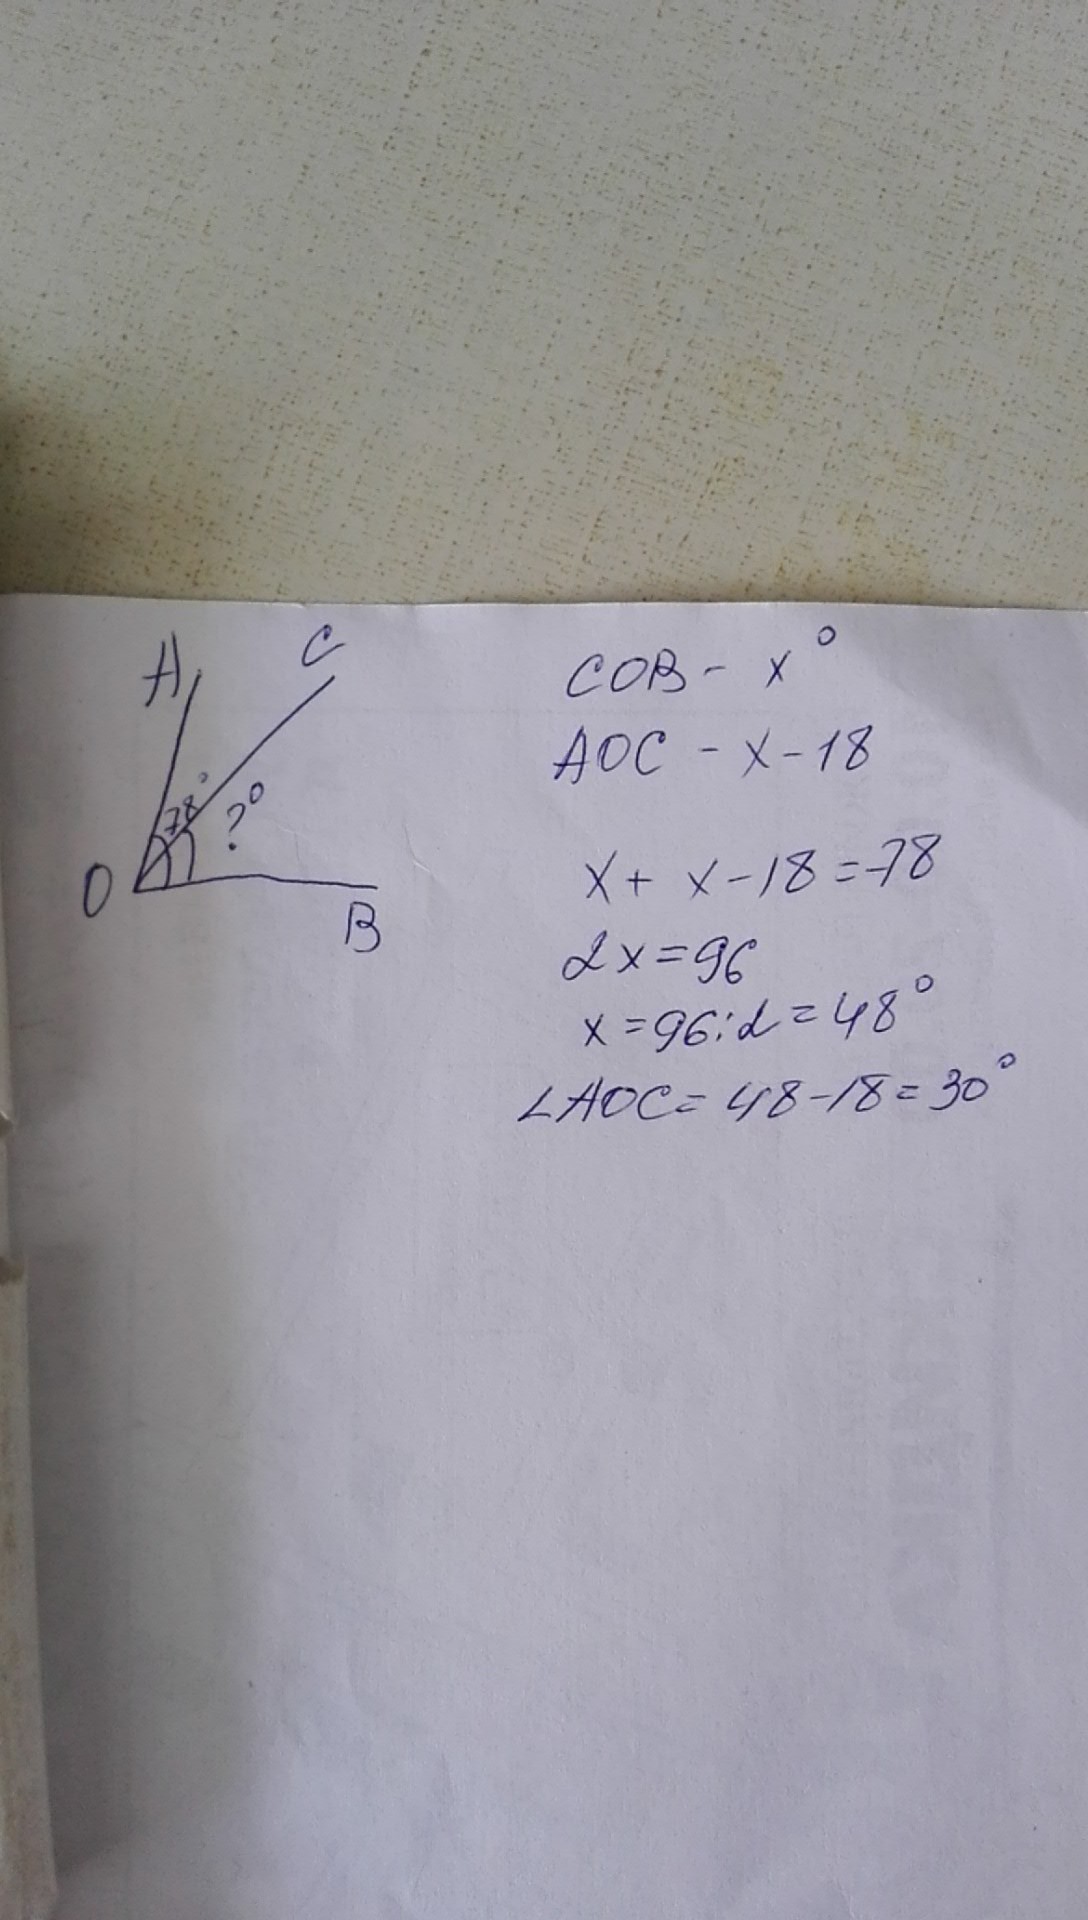 A
C
78°
?°
O
B
COB - x°
AOC - x - 18
x + x - 18 = 78
2x = 96
x = 96 : 2 = 48°
∠AOC = 48 - 18 = 30°